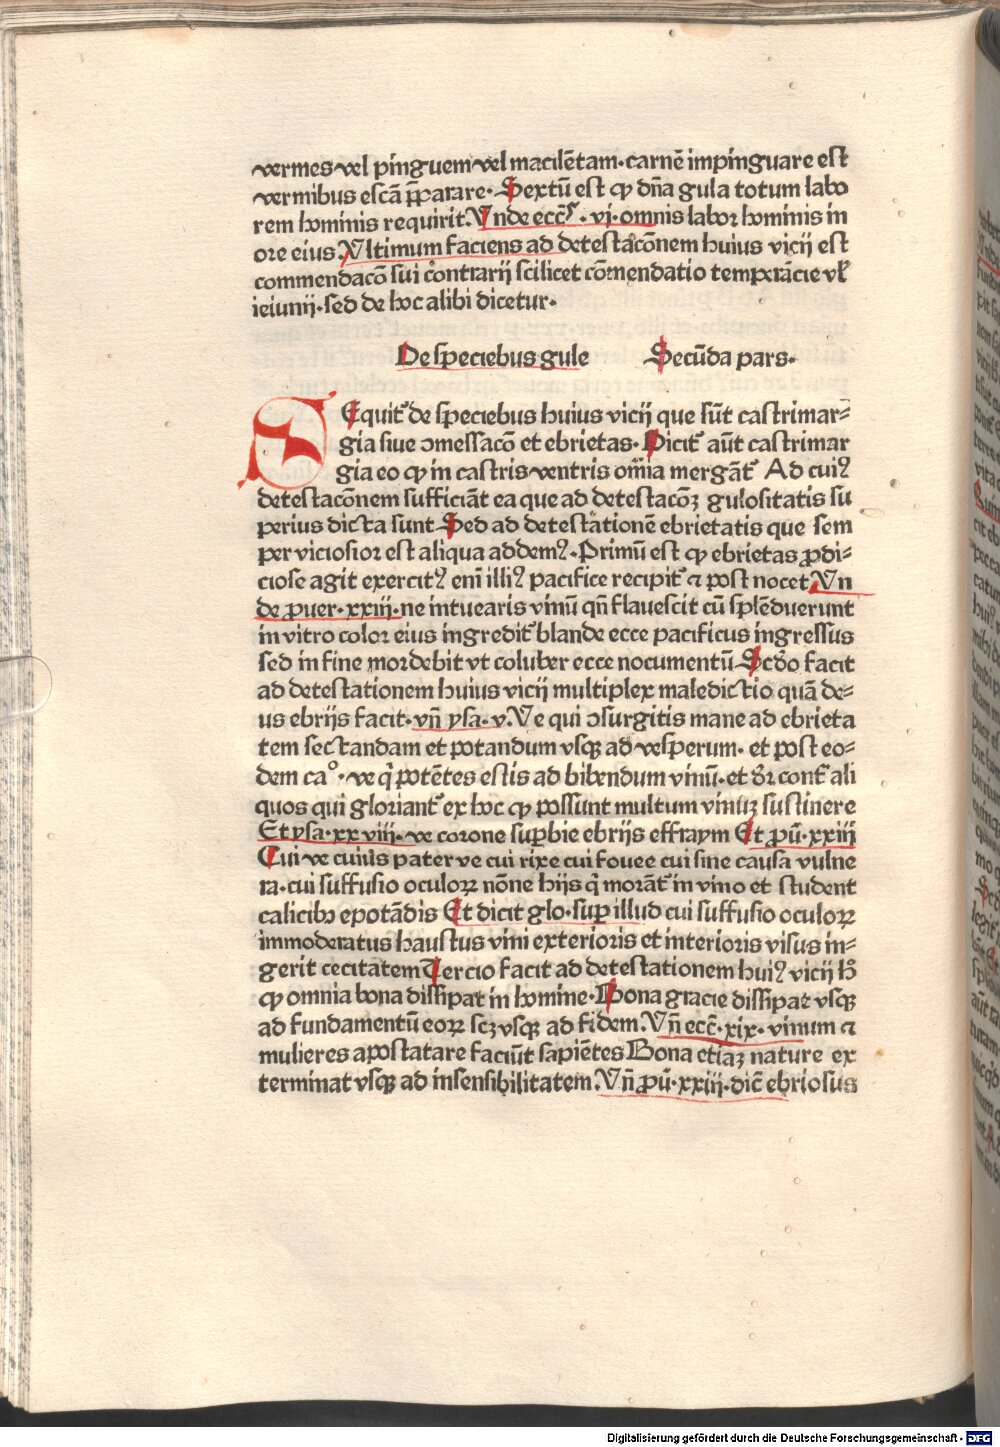 vermes vel pinguem vel macilētam·carnē impinguare est
vermibus escā p̄parare·Sextū est ꝙ dn̄a gula totum labo
rem hominis requirit.Vnde ecc̄ꝭ·vj·omnis labor hominis in
ore eius.Vltimum faciens ad detestacōnem huius vicij est
commendacō sui contrarij scilicet cōmendatio temꝑācie vl̕
ieiunij·sed de hoc alibi dicetur·
De speciebus gule Secūda pars·
SEquit̕ de speciebus huius vicij que sūt castrimar⸗
gia siue ɔmessacō et ebrietas·Dicit̕ aūt castrimar
gia eo ꝙ in castris ventris om̄ia mergāt̕ Ad cuiꝰ
detestacōnem sufficiāt ea que ad detestacōꝫ gulositatis su
perius dicta sunt Sed ad detestationē ebrietatis que sem
per viciosior est aliqua addemꝰ·Primū est ꝙ ebrietas ꝓdi⸗
ciose agit exercitꝰ enī illiꝰ pacifice recipit̕ ⁊ post nocet.Vn
de ꝓuer·xxiij·ne intuearis vinū qn̄ flauescit cū splēduerunt
in vitro color eius ingredit̕ blande ecce pacificus ingressus
sed in fine mordebit vt coluber ecce nocumentū Scd̕o facit
ad detestationem huius vicij multiplex maledictio quā de⸗
us ebrijs facit·vn̄ ysa·v.Ve qui ɔsurgitis mane ad ebrieta
tem sectandam et potandum vsqꝫ ad vesperum·et post eo⸗
dem ca°·ve q̕ potētes estis ad bibendum vinū·et d̕r cont̕ ali
quos qui gloriant̕ ex hoc ꝙ possunt multum vinuꝫ sustinere
Et ysa·xxviij·ve corone suꝑbie ebrijs effraym Et ꝓū·xxiij
Cui ve cuius pater ve cui rixe cui fouee cui sine causa vulne
ra·cui suffusio oculoꝝ nōne hijs q̕ morāt̕ in vino et student
calicibꝫ epotādis Et dicit glo·suꝑ illud cui suffusio oculoꝝ
immoderatus haustus vini exterioris et interioris visus in⸗
gerit cecitatem Tercio facit ad detestationem huiꝰ vicij h̕°
ꝙ omnia bona dissipat in homine·Bona gracie dissipat vsqꝫ
ad fundamentū eoꝝ scꝫ vsqꝫ ad fidem.Vn̄ ecc̄·xix·vinum ⁊
mulieres apostatare faciūt sapiētes Bona etiaꝫ nature ex
terminat vsqꝫ ad insensibilitatem.Vn̄ ꝓū·xxiij·dic̄ ebriosus
Digitalisierung gefördert durch die Deutsche Forschungsgemeinschaft - DFG